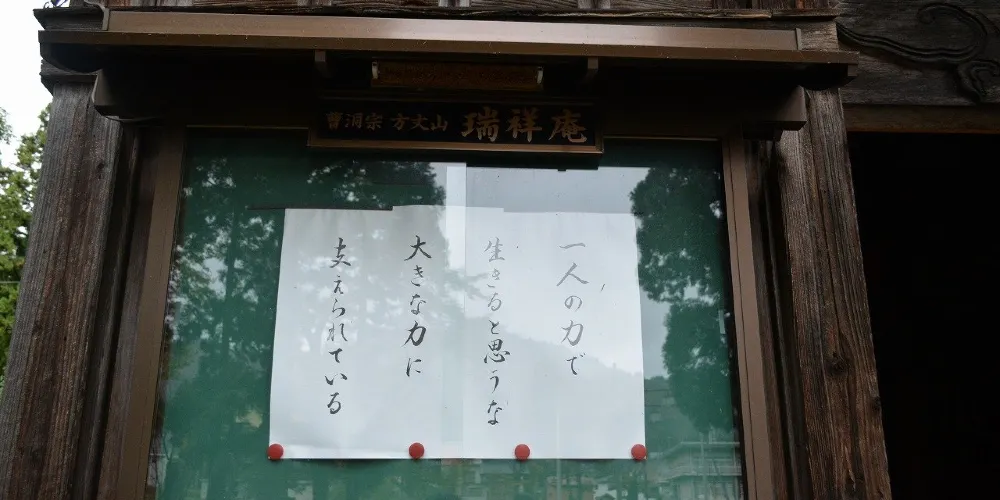 曹洞宗 方丈山 瑞祥庵
一人の力で
生きると思うな
大きな力に
支えられている